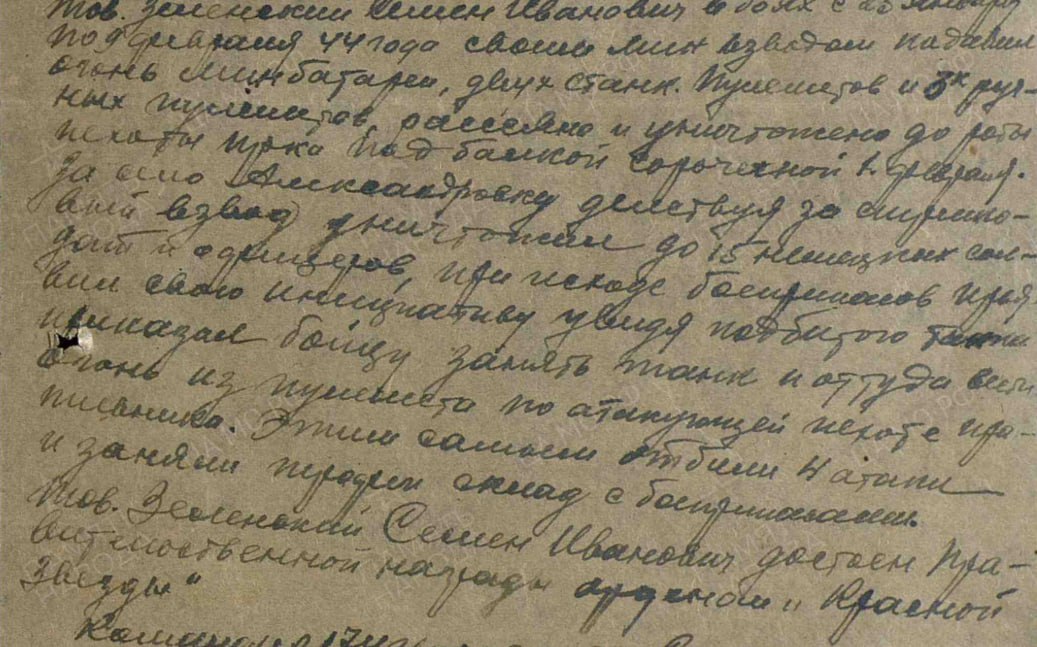 Тов. Зеленский Семен Иванович в боях с 25 января
по 9 февраля 44 года своим мин взводом подавил
огонь минбатареи, двух станк. пулеметов и 3х руч-
ных пулеметов рассеяно и уничтожено до роты
пехоты пр-ка под балкой Сороченной 1. февраля.
За село Александровку действуя за стрелко-
вый взвод уничтожил до 15 немецких сол-
дат и офицеров, при исходе боеприпасов проя
вил свою инициативу увидя подбитого танка
приказал бойцу занять танк и оттуда вести
огонь из пулемета по атакующей пехоте про-
тивника. Этим самым отбили 4 атаки
и заняли трофеи склад с боеприпасами.
Тов. Зеленский Семен Иванович достоен Пра-
вительственной награды орденом „Красной
Звезды"
Командир